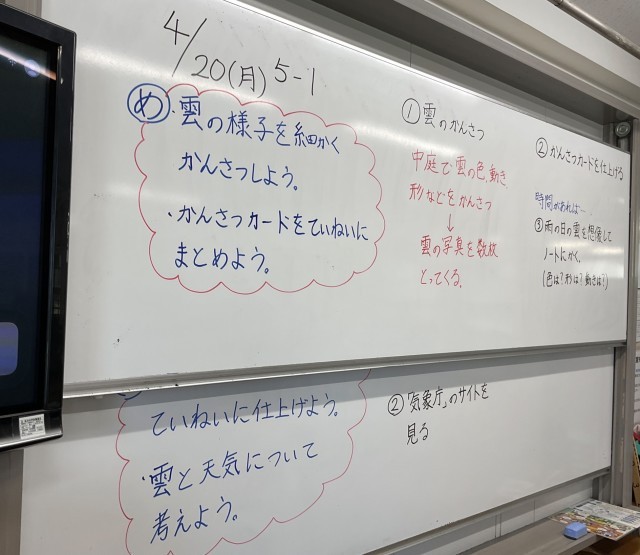 4/20(月) 5-1
め ・雲の様子を細かく
かんさつしよう。
・かんさつカードをていねいに
まとめよう。
① 雲のかんさつ
中庭で雲の色、動き、
形などをかんさつ
↓
雲の写真を数枚
とってくる。
② かんさつカードを仕上げる
時間があれば…
③ 雨の日の雲を想像して
ノートにかく。
(色は？形は？動きは？)
ていねいに仕上げよう。
・雲と天気について
考えよう。
②「気象庁」のサイトを
見る